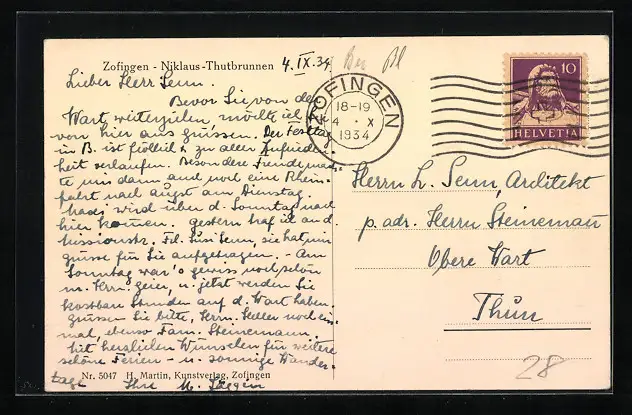 Zofingen - Niklaus-Thutbrunnen 4.IX.34
Lieber Herr Senn.
Bevor Sie von der
Wart weiterziehen, möchte ich Sie
von hier aus grüssen. Der Festtag
in B. ist fröhlich & zu aller Zufrieden-
heit verlaufen. Besondere Freude mach-
te uns dann auch eine Rhein-
fahrt nach Augst am Dienstag.
wird über d. Sonntag nach
hier kommen. Gestern traf ich auf d.
Missionsstr. Frl. Susi Senn, sie hat mir
Grüsse für Sie aufgetragen. - Am
Sonntag war's gewiss noch schön
m. Herrn u. jetzt werden Sie
kostbare Stunden auf d. Wart haben.
Grüssen Sie bitte, Herrn noch ein-
mal, ebenso Fam. Steinemann.
Mit herzlichen Wünschen für weitere
schöne Ferien - u. sonnige Wander-
tage Ihre M.
Nr. 5047 H. Martin, Kunstverlag, Zofingen
ZOFINGEN
18-19
4 · X
1934
10
HELVETIA
Herrn L. Senn, Architekt
p. adr. Herrn Steinemann
Obere Wart
Thun
28